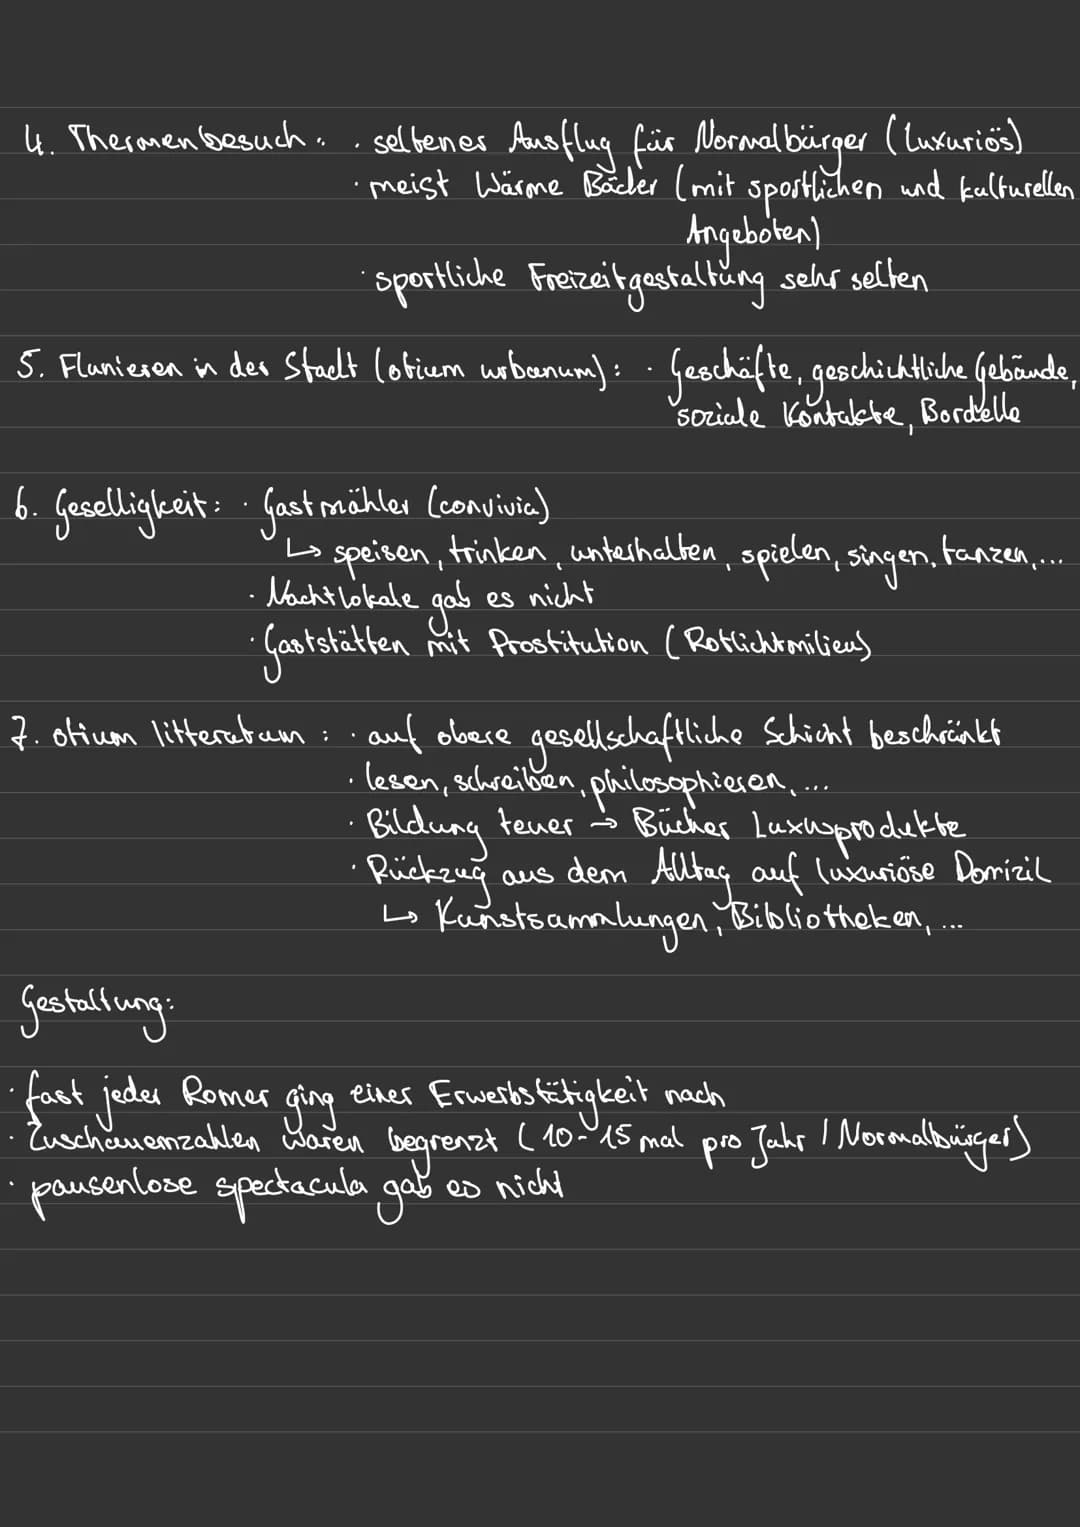 4. Thermenbesuch: · seltener Ausflug für Normalbürger (Luxuriös)
· meist Wärme Bäder (mit sportlichen und kulturellen
Angeboten)
· sportliche Freizeitgestaltung sehr selten
5. Flanieren in der Stadt (otium urbanum): · Geschäfte, geschichtliche Gebäude,
soziale Kontakte, Bordelle
6. Geselligkeit: · Gastmähler (convivia)
↳ speisen, trinken, unterhalten, spielen, singen, tanzen,...
· Nachtlokale gab es nicht
· Gaststätten mit Prostitution (Rotlichtmilieu)
7. otium litteratum: · auf obere gesellschaftliche Schicht beschränkt
· lesen, schreiben, philosophieren, ...
· Bildung teuer → Bücher Luxusprodukte
· Rückzug aus dem Alltag auf luxuriöse Domizil
↳ Kunstsammlungen, Bibliotheken, ...
Gestaltung:
· fast jeder Römer ging einer Erwerbstätigkeit nach
· Zuschauerzahlen waren begrenzt (10-15 mal pro Jahr / Normalbürger)
· pausenlose spectacula gab es nicht